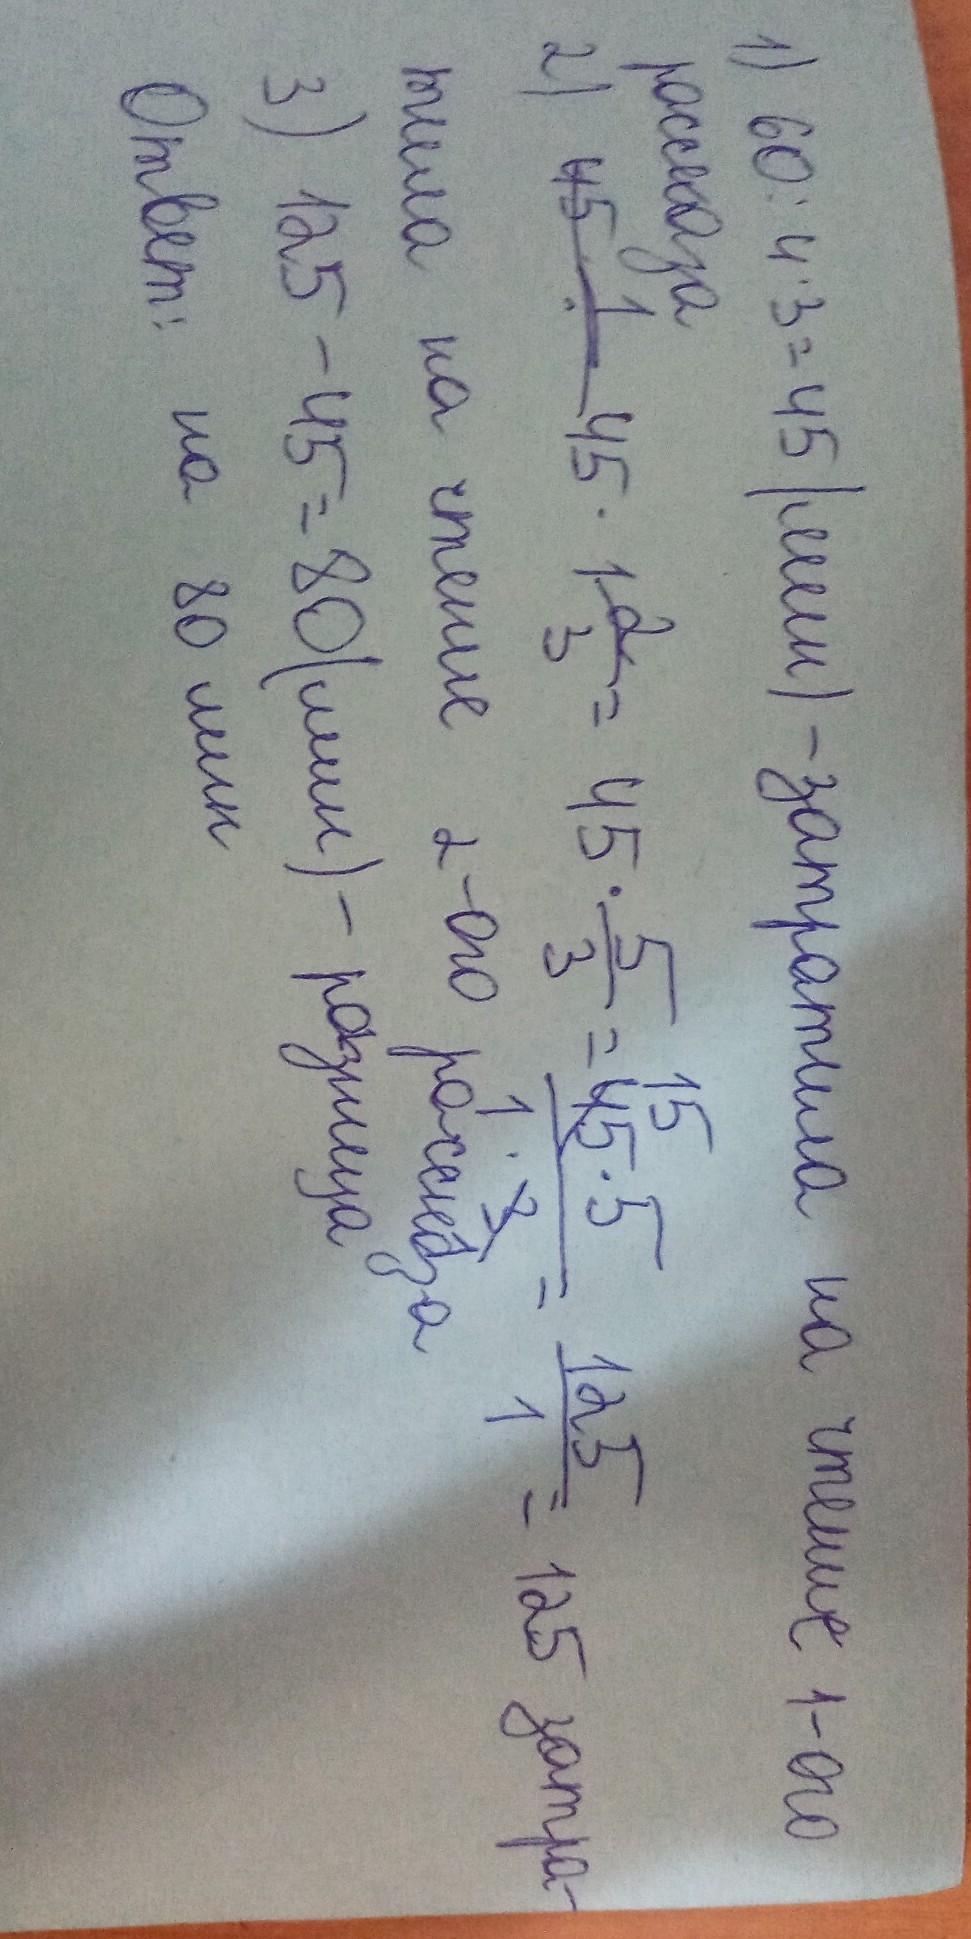 1) 60 : 4 · 3 = 45 (мин) - затратила на чтение 1-ого
рассказа
2) 45 · 1 45 · 1 2/3 = 45 · 5/3 = 45 · 5 / 1 · 3 = 125/1 = 125 затра-
15
1
тила на чтение 2-ого рассказа
3) 125 - 45 = 80 (мин) - разница
Ответ: на 80 мин